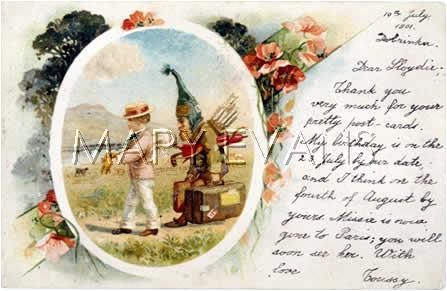 10th July,
1901.
Dear Lloydie -
Thank you
very much for your
pretty post-cards.
My birthday is on the
23. July by our date
and I think on the
fourth of August by
yours Maisie is now
gone to Paris; you will
soon see her. With
love
Toussy.
MARY EVANS